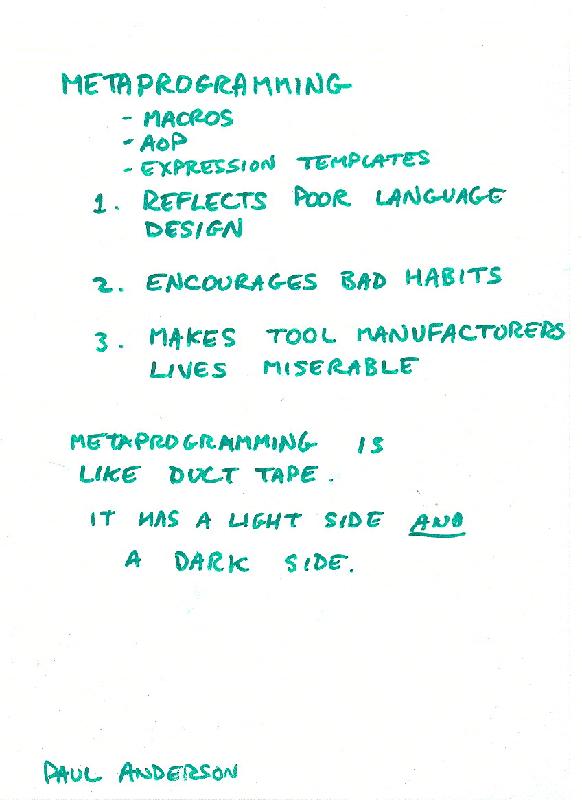 METAPROGRAMMING
- MACROS
- AOP
- EXPRESSION TEMPLATES
1. REFLECTS POOR LANGUAGE
DESIGN
2. ENCOURAGES BAD HABITS
3. MAKES TOOL MANUFACTORERS
LIVES MISERABLE
METAPROGRAMMING IS
LIKE DUCT TAPE.
IT HAS A LIGHT SIDE AND
A DARK SIDE.
PAUL ANDERSON